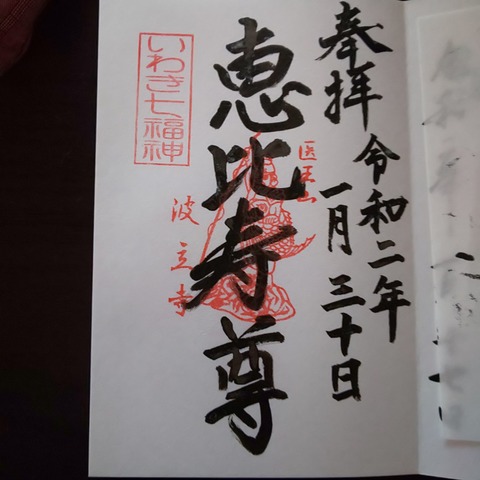 奉拝
令和二年
一月三十日
医王山
恵比寿尊
波立寺
いわき七福神